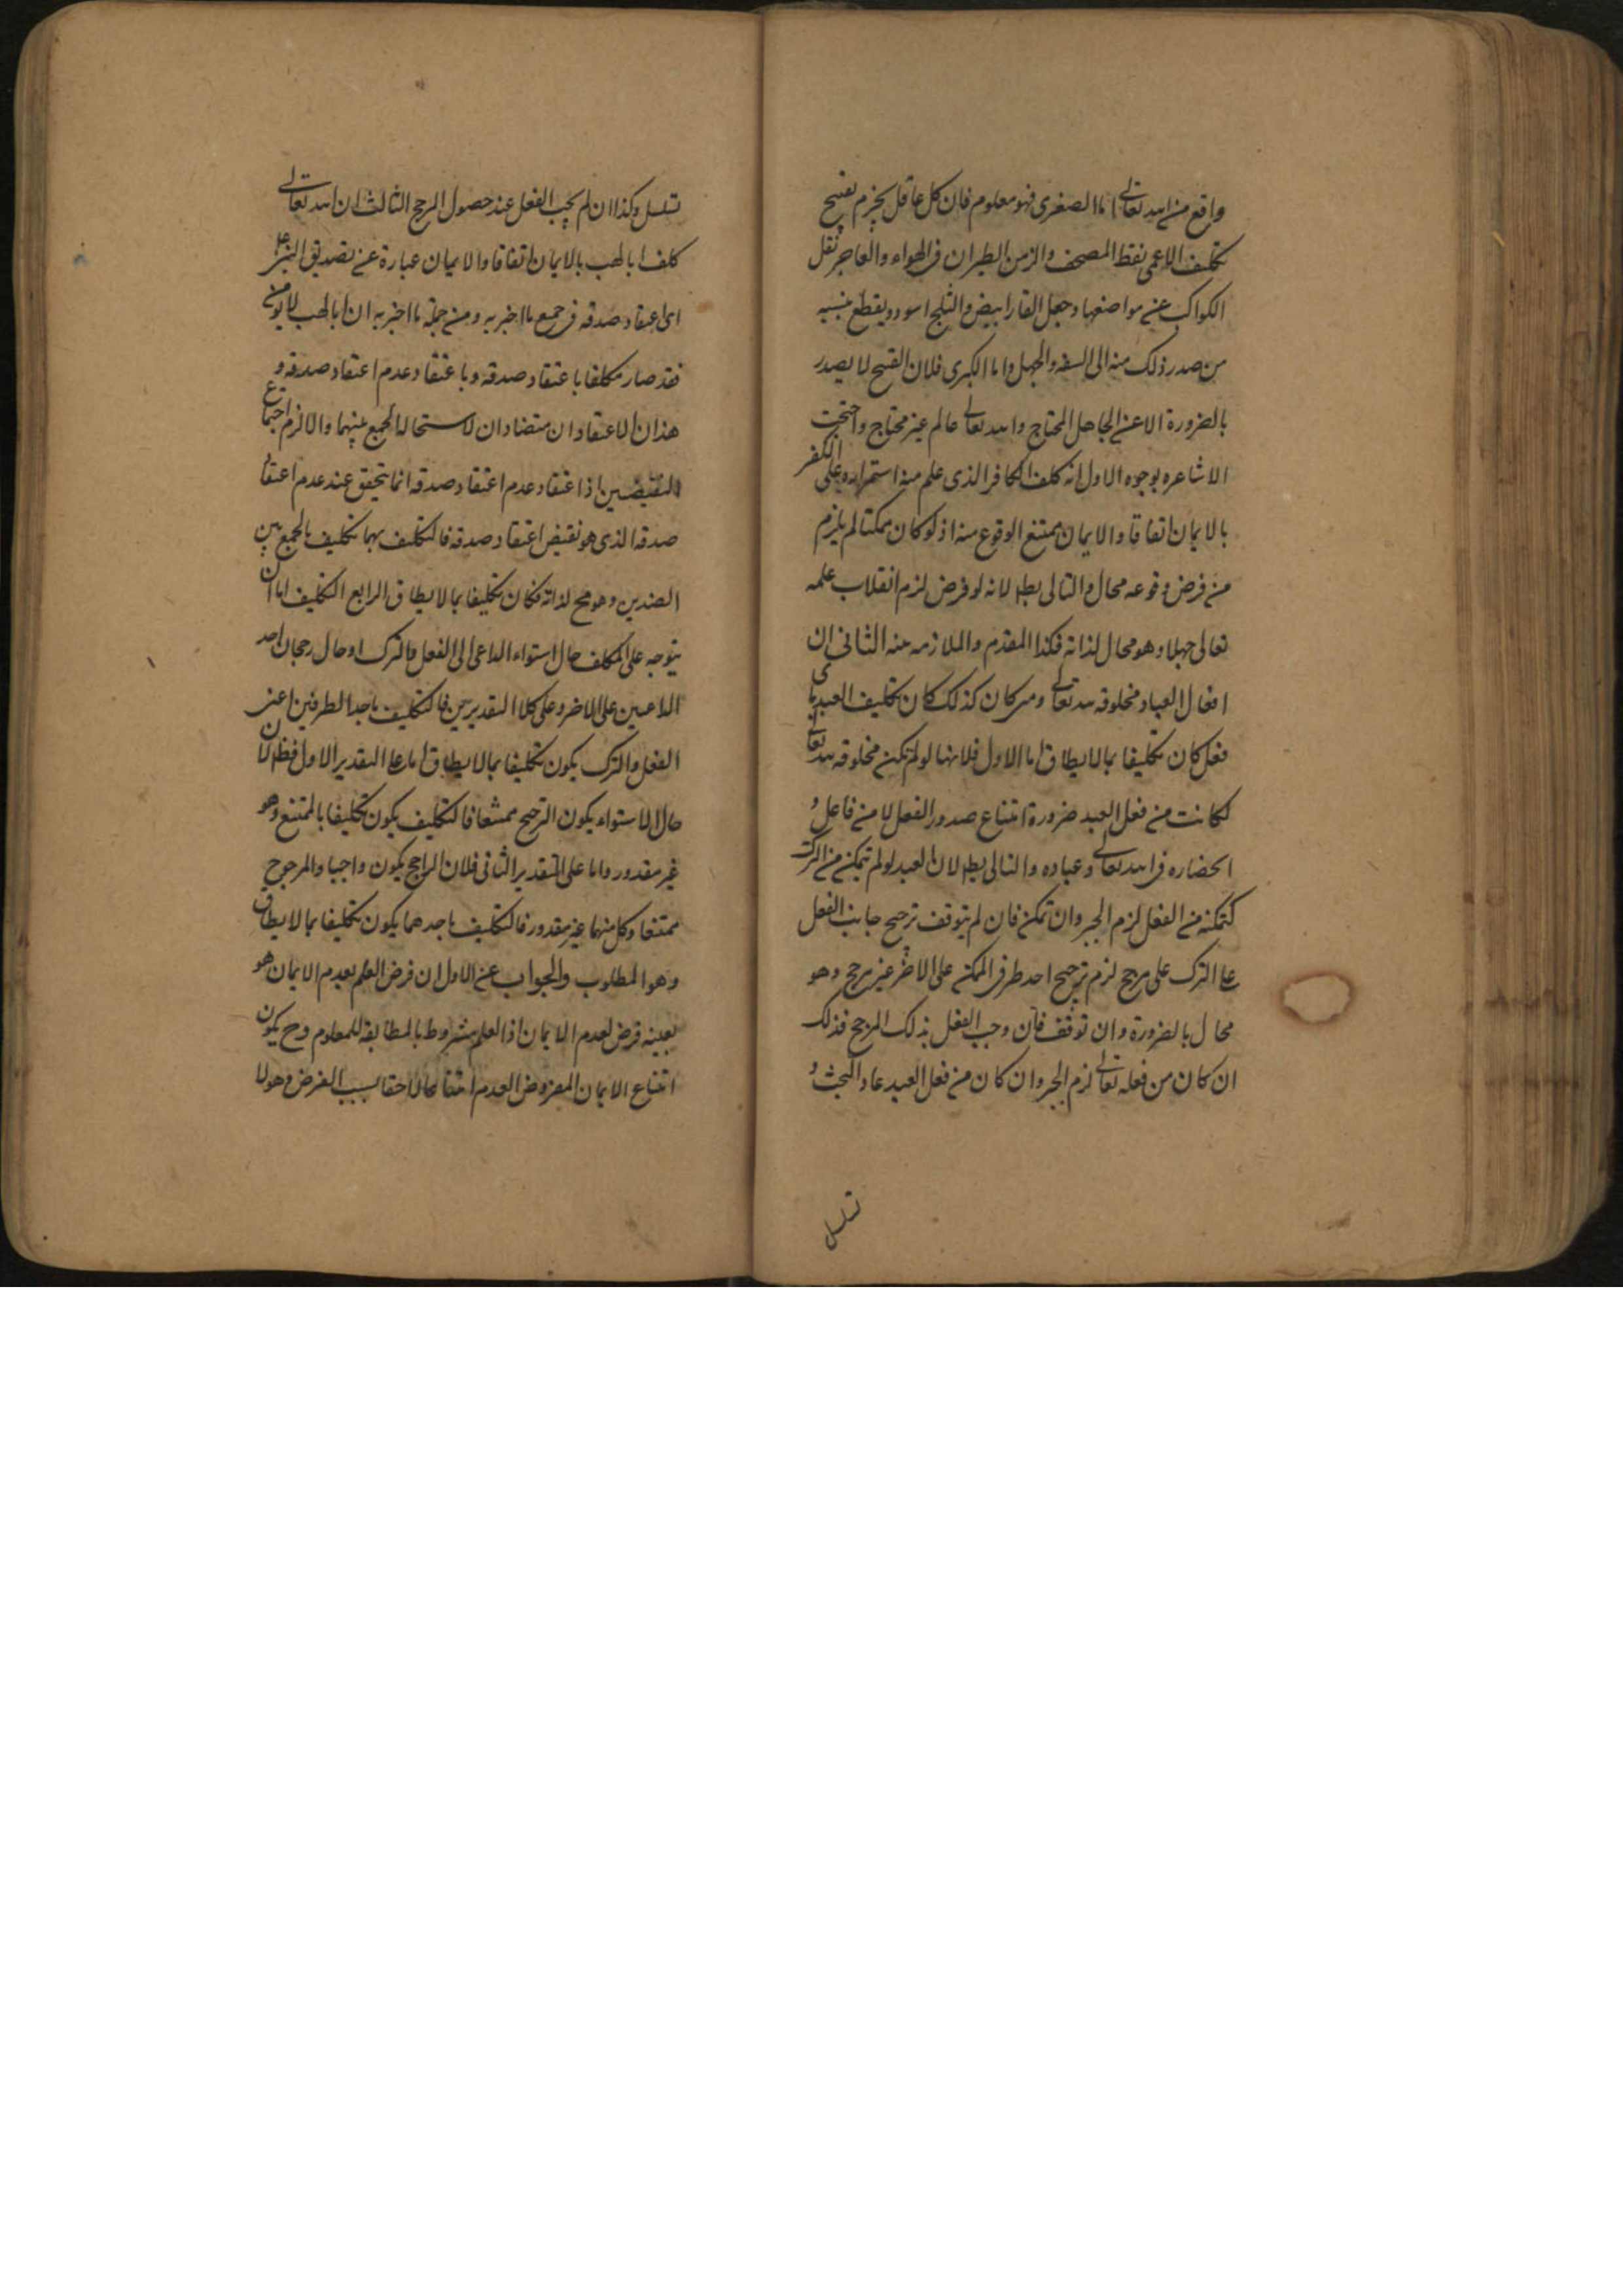 واقع من الله تعالى اما الصغرى فهو معلوم فان كل عاقل يجزم بقبح
تكليف الاعمى نقط المصحف والزمن الطيران فى الهواء والعاجز نقل
الكواكب عن مواضعها وجعل القار ابيض والثلج اسود ويقطع بنسبه
من صدر ذلك منه الى السفه والجهل واما الكبرى فلان القبيح لا يصدر
بالضرورة الا عن الجاهل المحتاج والله تعالى عالم غير محتاج واحتجت
الاشاعره بوجوه الاول انه كلف الكافر الذى علم منه استمراره على الكفر
بالايمان اتفاقا والايمان ممتنع الوقوع منه اذ لو كان ممكنا لم يلزم
من فرض وقوعه محال والتالى بط لانه لو فرض لزم انقلاب علمه
تعالى جهلا وهو محال لذاته فكذا المقدم والملازمه منه الثانى ان
افعال العباد مخلوقه لله تعالى ومتى كان كذلك كان تكليف العبد باى
فعل كان تكليفا بما لا يطاق اما الاول فلانها لو لم تكن مخلوقه لله تعالى
لكانت من فعل العبد ضرورة امتناع صدور الفعل لا من فاعل و
انحصاره فى الله تعالى وعباده والتالى بط لان العبد لو لم يتمكن من الترك
كتمكنه من الفعل لزم الجبر وان تمكن فان لم يتوقف ترجيح جانب الفعل
على الترك على مرجح لزم ترجيح احد طرفى الممكن على الاخر من غير مرجح وهو
محال بالضرورة وان توقف فان وجب الفعل بذلك المرجح فذلك
ان كان من فعله تعالى لزم الجبر وان كان من فعل العبد عاد البحث و
تسلسل
تسلسل وكذا ان لم يجب الفعل عند حصول المرجح الثالث ان الله تعالى
كلف ابا لهب بالايمان اتفاقا والايمان عبارة عن تصديق النبى
اى اعتقاد صدقه فى جميع ما اخبر به ومن جملة ما اخبر به ان ابا لهب لا يؤمن
فقد صار مكلفا باعتقاد صدقه وباعتقاد عدم اعتقاد صدقه و
هذان الاعتقادان متضادان لاستحالة الجمع بينهما والا لزم اجتماع
النقيضين اذ اعتقاد عدم اعتقاد صدقه انما يتحقق عند عدم اعتقاد
صدقه الذى هو نقيض اعتقاد صدقه فالتكليف بهما تكليف بالجمع بين
الضدين وهو مح لذاته فكان تكليفا بما لا يطاق الرابع التكليف اما ان
يتوجه على المكلف حال استواء الداعى الى الفعل والترك او حال رجحان احد
الداعيين على الاخر وعلى كلا التقديرين فالتكليف باحد الطرفين اعنى
الفعل والترك يكون تكليفا بما لا يطاق اما على التقدير الاول فظ لان
حال الاستواء يكون الترجيح ممتنعا فالتكليف يكون تكليفا بالممتنع وهو
غير مقدور واما على التقدير الثانى فلان الراجح يكون واجبا والمرجوح
ممتنعا وكل منهما غير مقدور فالتكليف باحدهما يكون تكليفا بما لا يطاق
وهو المطلوب والجواب عن الاول ان فرض العلم بعدم الايمان هو
بعينه فرض لعدم الايمان اذ العلم مشروط بالمطابقه للمعلوم وح يكون
امتناع الايمان المفروض العدم امتناعا لاحقا بسبب الفرض وهو لا